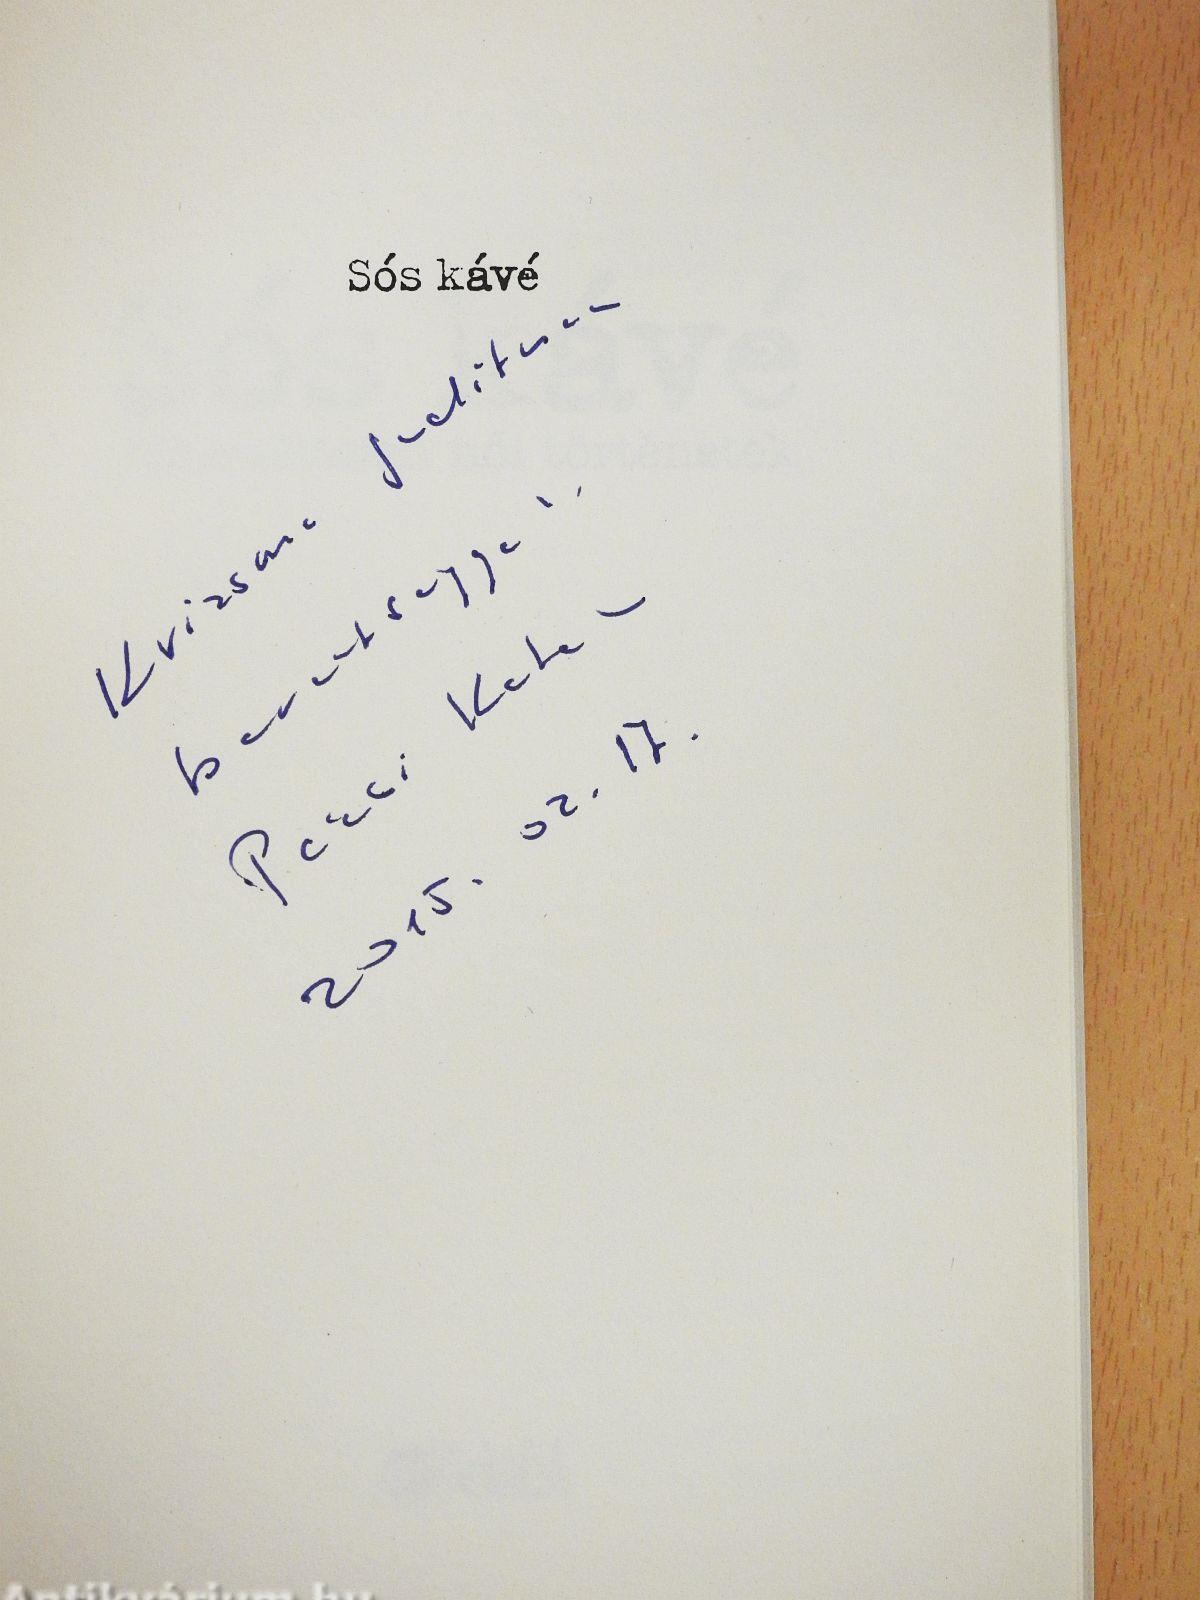 Sós kávé
Krizsanné Juditnak
barátsággal:
Pécsi Kata
2015. 02. 17.
Antikvárium.hu